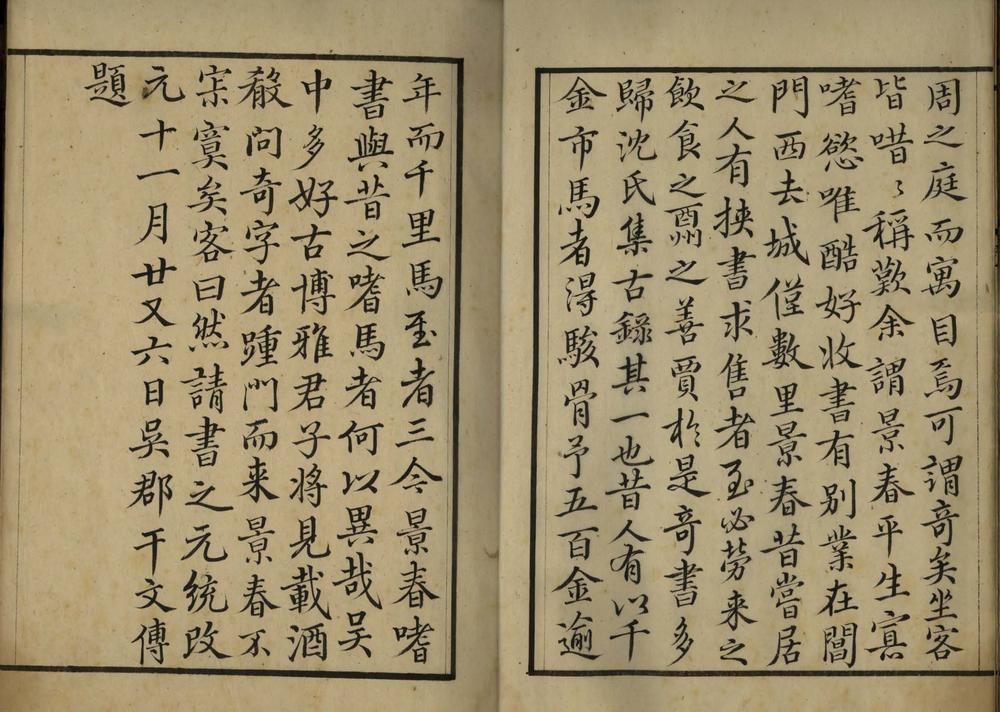 周之庭而寓目焉可謂竒矣坐客
皆唶〻稱歎余謂景春平生寡
嗜慾唯酷好收書有别業在閶
門西去城僅數里景春昔嘗居
之人有挾書求售者至必勞来之
飲食之酧之善賈於是奇書多
歸沈氏集古錄其一也昔人有以千
金市馬者得駿骨予五百金逾
年而千里馬至者三今景春嗜
書與昔之嗜馬者何以異哉吴
中多好古博雅君子将見載酒
殽问奇字者踵门而来景春不
寂寞矣客曰然請書之元統改
元十一月廿又六日吴郡干文傳
題